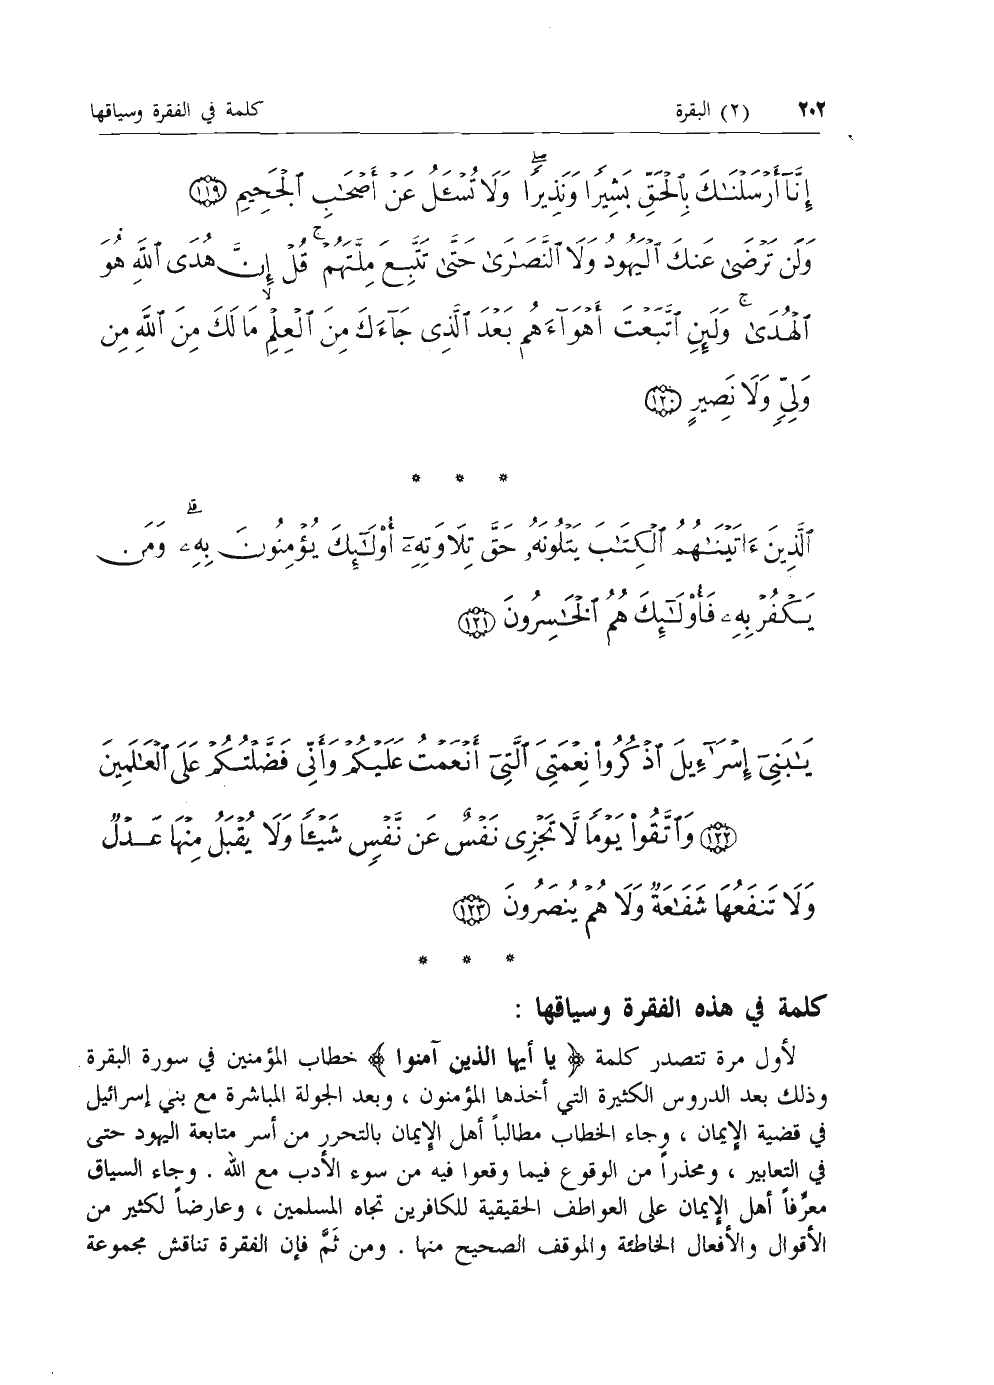 ٢٠٢ (٢) البقرة كلمة في الفقرة وسياقها
إِنَّآ أَرْسَلْنَٰكَ بِٱلْحَقِّ بَشِيرًا وَنَذِيرًا ۖ وَلَا تُسْـَٔلُ عَنْ أَصْحَٰبِ ٱلْجَحِيمِ ١١٩
وَلَن تَرْضَىٰ عَنكَ ٱلْيَهُودُ وَلَا ٱلنَّصَٰرَىٰ حَتَّىٰ تَتَّبِعَ مِلَّتَهُمْ ۗ قُلْ إِنَّ هُدَى ٱللَّهِ هُوَ
ٱلْهُدَىٰ ۗ وَلَئِنِ ٱتَّبَعْتَ أَهْوَآءَهُم بَعْدَ ٱلَّذِى جَآءَكَ مِنَ ٱلْعِلْمِ ۙ مَا لَكَ مِنَ ٱللَّهِ مِن
وَلِىٍّ وَلَا نَصِيرٍ ١٢٠
* * *
ٱلَّذِينَ ءَاتَيْنَٰهُمُ ٱلْكِتَٰبَ يَتْلُونَهُۥ حَقَّ تِلَاوَتِهِۦٓ أُو۟لَٰٓئِكَ يُؤْمِنُونَ بِهِۦ ۗ وَمَن
يَكْفُرْ بِهِۦ فَأُو۟لَٰٓئِكَ هُمُ ٱلْخَٰسِرُونَ ١٢١
يَٰبَنِىٓ إِسْرَٰٓءِيلَ ٱذْكُرُوا۟ نِعْمَتِىَ ٱلَّتِىٓ أَنْعَمْتُ عَلَيْكُمْ وَأَنِّى فَضَّلْتُكُمْ عَلَى ٱلْعَٰلَمِينَ
١٢٢ وَٱتَّقُوا۟ يَوْمًا لَّا تَجْزِى نَفْسٌ عَن نَّفْسٍ شَيْـًٔا وَلَا يُقْبَلُ مِنْهَا عَدْلٌ
وَلَا تَنفَعُهَا شَفَٰعَةٌ وَلَا هُمْ يُنصَرُونَ ١٢٣
* * *
كلمة في هذه الفقرة وسياقها :
لأول مرة تتصدر كلمة ﴿ يا أيها الذين آمنوا ﴾ خطاب المؤمنين في سورة البقرة
وذلك بعد الدروس الكثيرة التي أخذها المؤمنون ، وبعد الجولة المباشرة مع بني إسرائيل
في قضية الإيمان ، وجاء الخطاب مطالباً أهل الإيمان بالتحرر من أسر متابعة اليهود حتى
في التعابير ، ومحذراً من الوقوع فيما وقعوا فيه من سوء الأدب مع الله . وجاء السياق
معرِّفاً أهل الإيمان على العواطف الحقيقية للكافرين تجاه المسلمين ، وعارضاً لكثير من
الأقوال والأفعال الخاطئة والموقف الصحيح منها . ومن ثَمَّ فإن الفقرة تناقش مجموعة